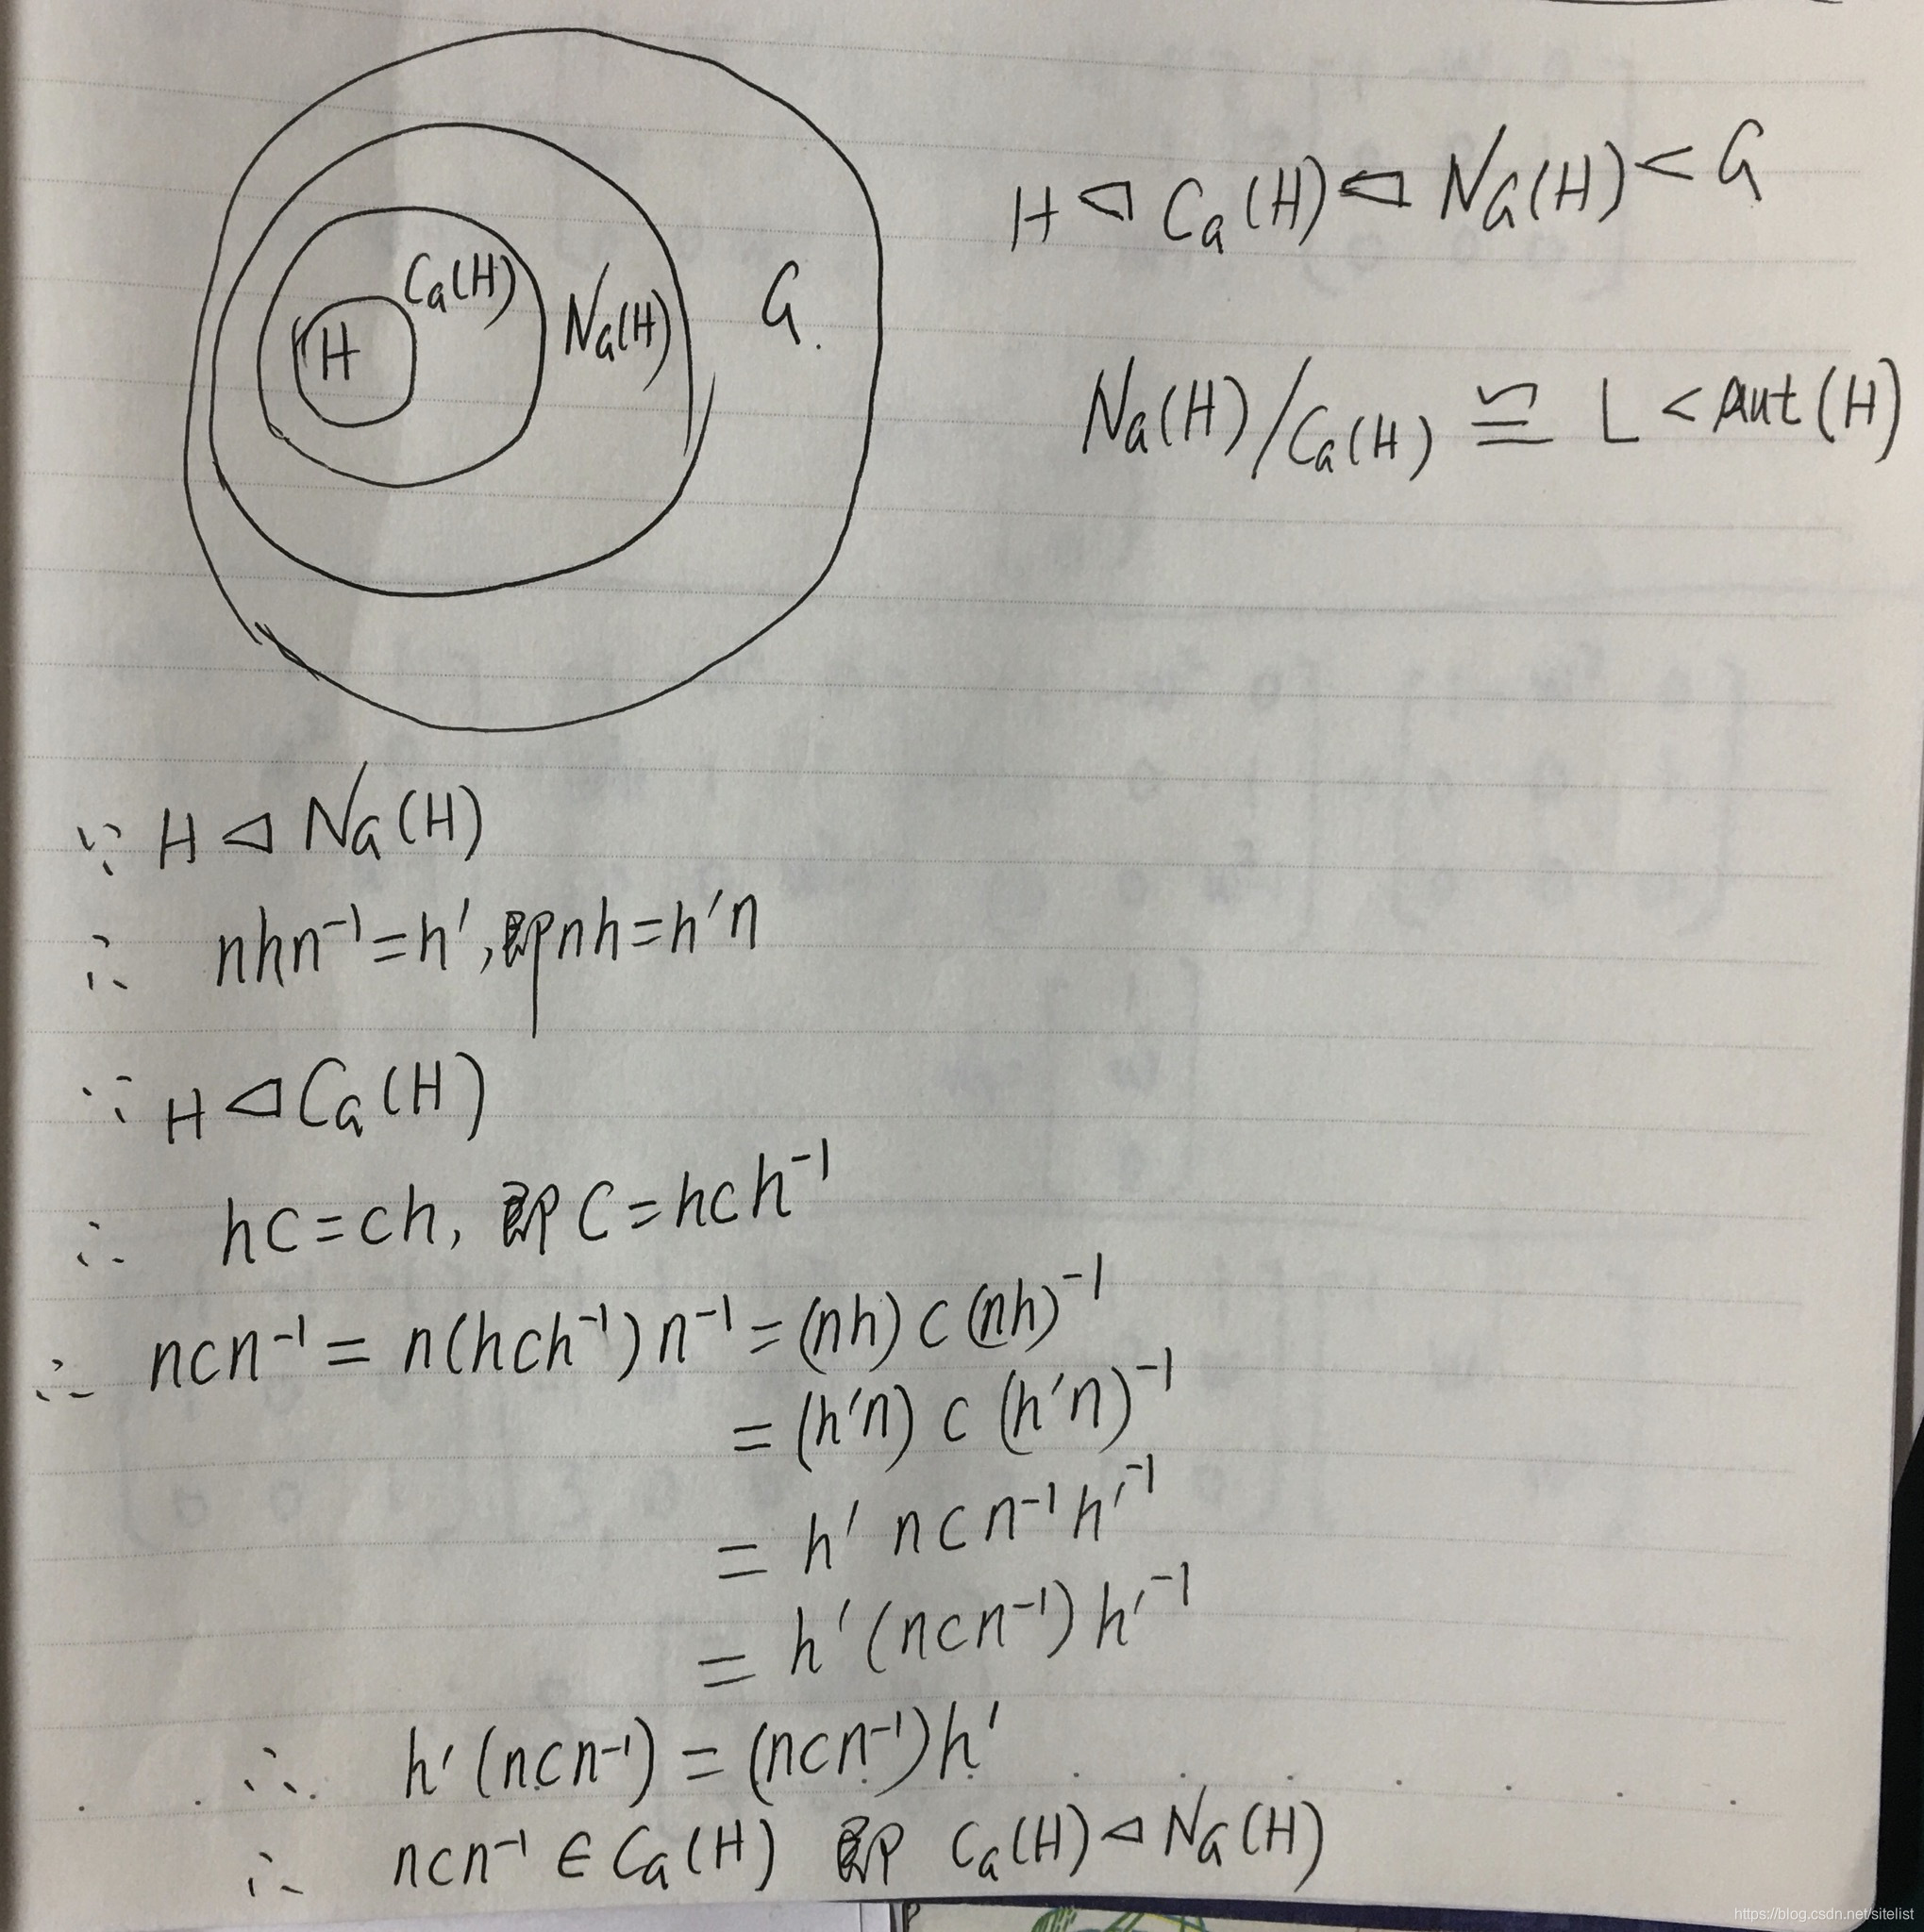 H C_G(H) N_G(H) G.
H ◁ C_G(H) ◁ N_G(H) < G
N_G(H)/C_G(H) ≌ L < Aut(H)
∵ H ◁ N_G(H)
∴ nhn⁻¹=h′, 即nh=h′n
∵ H ◁ C_G(H)
∴ hc=ch, 即 c=hch⁻¹
∴ ncn⁻¹ = n(hch⁻¹)n⁻¹ = (nh)c(nh)⁻¹
= (h′n) c (h′n)⁻¹
= h′ncn⁻¹h′⁻¹
= h′(ncn⁻¹)h′⁻¹
∴ h′(ncn⁻¹) = (ncn⁻¹)h′
∴ ncn⁻¹ ∈ C_G(H) 即 C_G(H) ◁ N_G(H)
https://blog.csdn.net/sitelist